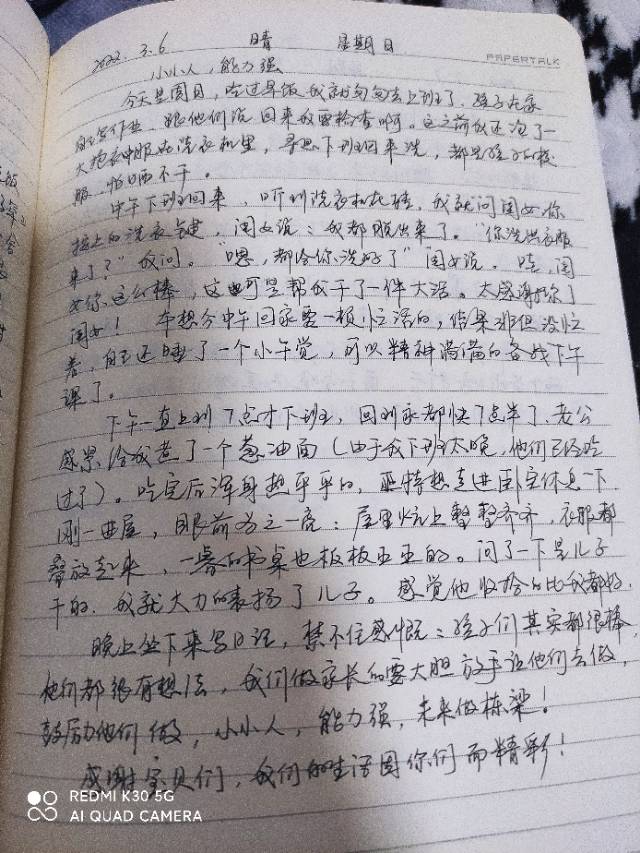 2022. 3. 6 晴 星期日
PAPERTALK
小小人，能力强
今天是周日，吃过早饭我就匆匆去上班了，孩子在家
自己写作业，跟他们说回来我要检查啊。走之前我还泡了一
大抱衣服在洗衣机里，寻思下班回来洗，都是孩子的校
服，怕晒不干。
中午下班回来，听到洗衣机在转，我就问闺女你
按上的洗衣键，闺女说：我都脱出来了。"你洗出衣服
来了？"我问。"嗯，都给你洗好了"闺女说。哇，闺
女你这么棒，这可是帮我干了一件大活。太感谢你了
闺女！本想今中午回家要一顿忙活的，结果非但没忙
着，自己还睡了一个小午觉，可以精神满满的备战下午
课了。
下午一直上到7点才下班，回到家都快7点半了，老公
给我煮了一个葱油面（由于我下班太晚，他们已经吃
过了）。吃完后浑身热乎乎的，正想走进卧室休息下
刚一进屋，眼前为之一亮：屋里炕上整整齐齐，衣服都
叠放起来，一旁的书桌也板板正正的。问了一下是儿子
干的，我就大力的表扬了儿子。感觉他收拾的比我都好，
晚上坐下来写日记，禁不住感慨：孩子们其实都很棒，
他们都很有想法，我们做家长的要大胆放手让他们去做，
鼓励他们做，小小人，能力强，未来做栋梁！
感谢宝贝们，我们的生活因你们而精彩！
REDMI K30 5G
AI QUAD CAMERA